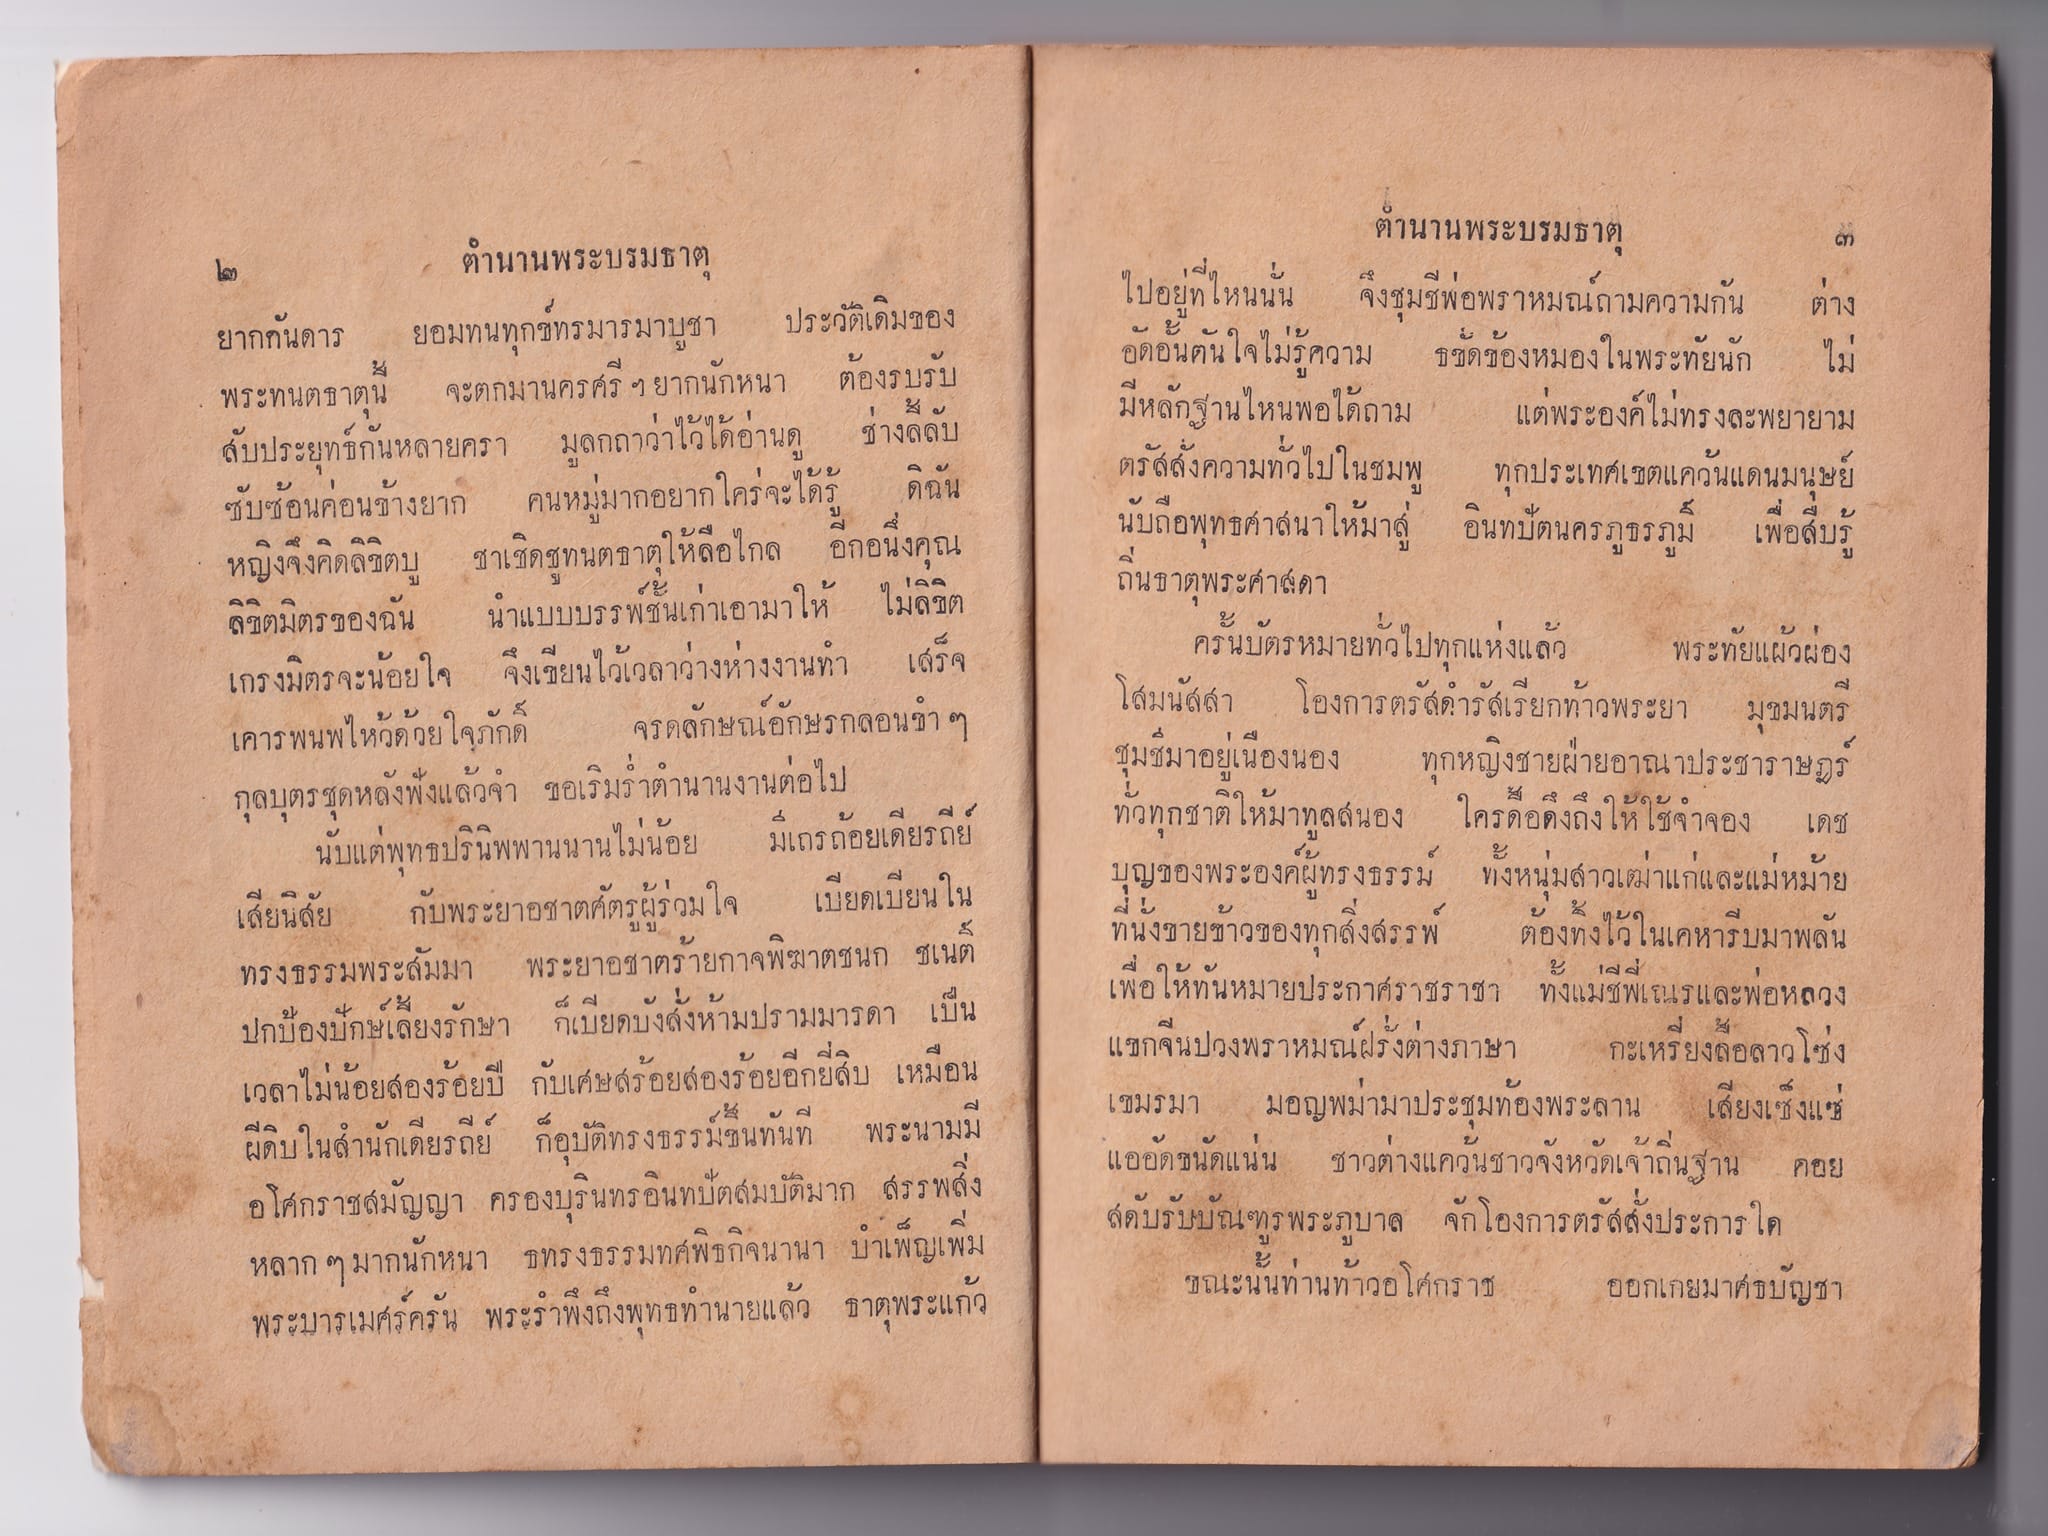 ๒ ตำนานพระบรมธาตุ
ยากกันดาร ยอมทนทุกข์ทรมารมาบูชา ประวัติเดิมของ
พระทนตธาตุนี้ จะตกมานครศรี ฯ ยากนักหนา ต้องรบรับ
สับประยุทธ์กันหลายครา มูลกถาว่าไว้ได้อ่านดู ช่างลี้ลับ
ซับซ้อนค่อนข้างยาก คนหมู่มากอยากใคร่จะได้รู้ ดิฉัน
หญิงจึงคิดลิขิตบู ชาเชิดชูทนตธาตุให้ลือไกล อีกอนึ่งคุณ
ลิขิตมิตรของฉัน นำแบบบรรพ์ชั้นเก่าเอามาให้ ไม่ลิขิต
เกรงมิตรจะน้อยใจ จึงเขียนไว้เวลาว่างห่างงานทำ เสร็จ
เคารพนพไหว้ด้วยใจภักดิ์ จรดลักษณ์อักษรกลอนขำ ๆ
กุลบุตรชุดหลังฟังแล้วจำ ขอเริมร่ำตำนานงานต่อไป
นับแต่พุทธปรินิพพานนานไม่น้อย มีเถรถ้อยเดียรถีย์
เสียนิสัย กับพระยาอชาตศัตรูผู้ร่วมใจ เบียดเบียนใน
ทรงธรรมพระสัมมา พระยาอชาตร้ายกาจพิฆาตชนก ชเนต์
ปกป้องปักษ์เลี้ยงรักษา ก็เบียดบังสั่งห้ามปรามมารดา เป็น
เวลาไม่น้อยสองร้อยปี กับเศษสร้อยสองร้อยอีกยี่สิบ เหมือน
ผีดิบในสำนักเดียรถีย์ ก็อุบัติทรงธรรม์ขึ้นทันที พระนามมี
อโศกราชสมัญญา ครองบุรินทรอินทปัตสมบัติมาก สรรพสิ่ง
หลาก ๆ มากนักหนา ธทรงธรรมทศพิธกิจนานา บำเพ็ญเพิ่ม
พระบารเมศร์ครัน พระรำพึงถึงพุทธทำนายแล้ว ธาตุพระแก้ว
ตำนานพระบรมธาตุ ๓
ไปอยู่ที่ไหนนั่น จึงชุมชีพ่อพราหมณ์ถามความกัน ต่าง
อัดอั้นตันใจไม่รู้ความ ธขัดข้องหมองในพระทัยนัก ไม่
มีหลักฐานไหนพอได้ถาม แต่พระองค์ไม่ทรงละพยายาม
ตรัสสั่งความทั่วไปในชมพู ทุกประเทศเขตแคว้นแดนมนุษย์
นับถือพุทธศาสนาให้มาสู่ อินทปัตนครภูธรภูมิ์ เพื่อสืบรู้
ถิ่นธาตุพระศาสดา
ครั้นบัตรหมายทั่วไปทุกแห่งแล้ว พระทัยแผ้วผ่อง
โสมนัสสา โองการตรัสดำรัสเรียกท้าวพระยา มุขมนตรี
ชุมชีมาอยู่เนืองนอง ทุกหญิงชายฝ่ายอาณาประชาราษฎร์
ทั่วทุกชาติให้มาทูลสนอง ใครดื้อดึงถึงให้ใช้จำจอง เดช
บุญของพระองค์ผู้ทรงธรรม์ ทั้งหนุ่มสาวเฒ่าแก่และแม่หม้าย
ที่นั่งขายข้าวของทุกสิ่งสรรพ์ ต้องทิ้งไว้ในเคหารีบมาพลัน
เพื่อให้ทันหมายประกาศราชราชา ทั้งแม่ชีพี่เณรและพ่อหลวง
แขกจีนปวงพราหมณ์ฝรั่งต่างภาษา กะเหรี่ยงลื้อลาวโซ่ง
เขมรมา มอญพม่ามาประชุมท้องพระลาน เสียงเซ็งแซ่
แออัดขนัดแน่น ชาวต่างแคว้นชาวจังหวัดเจ้าถิ่นฐาน คอย
สดับรับบัณฑูรพระภูบาล จักโองการตรัสสั่งประการใด
ขณะนั้นท่านท้าวอโศกราช ออกเกยมาศธบัญชา